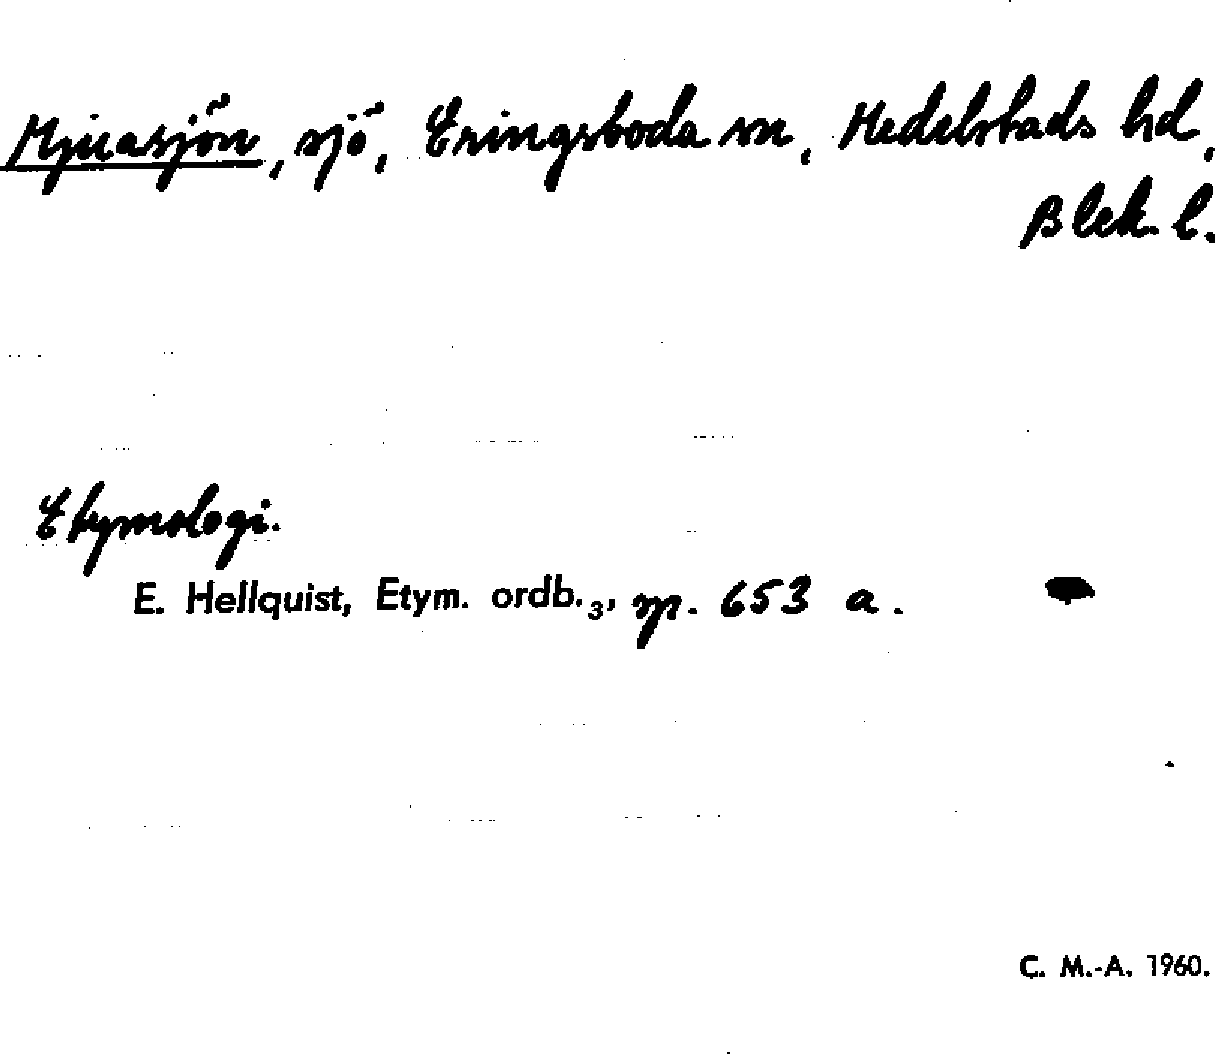 Mjuasjön, sjö, Eringsboda sn, Medelstads hd,
Blek. l.
Etymologi.
E. Hellquist, Etym. ordb.₃, sp. 653 a.
C. M.-A. 1960.